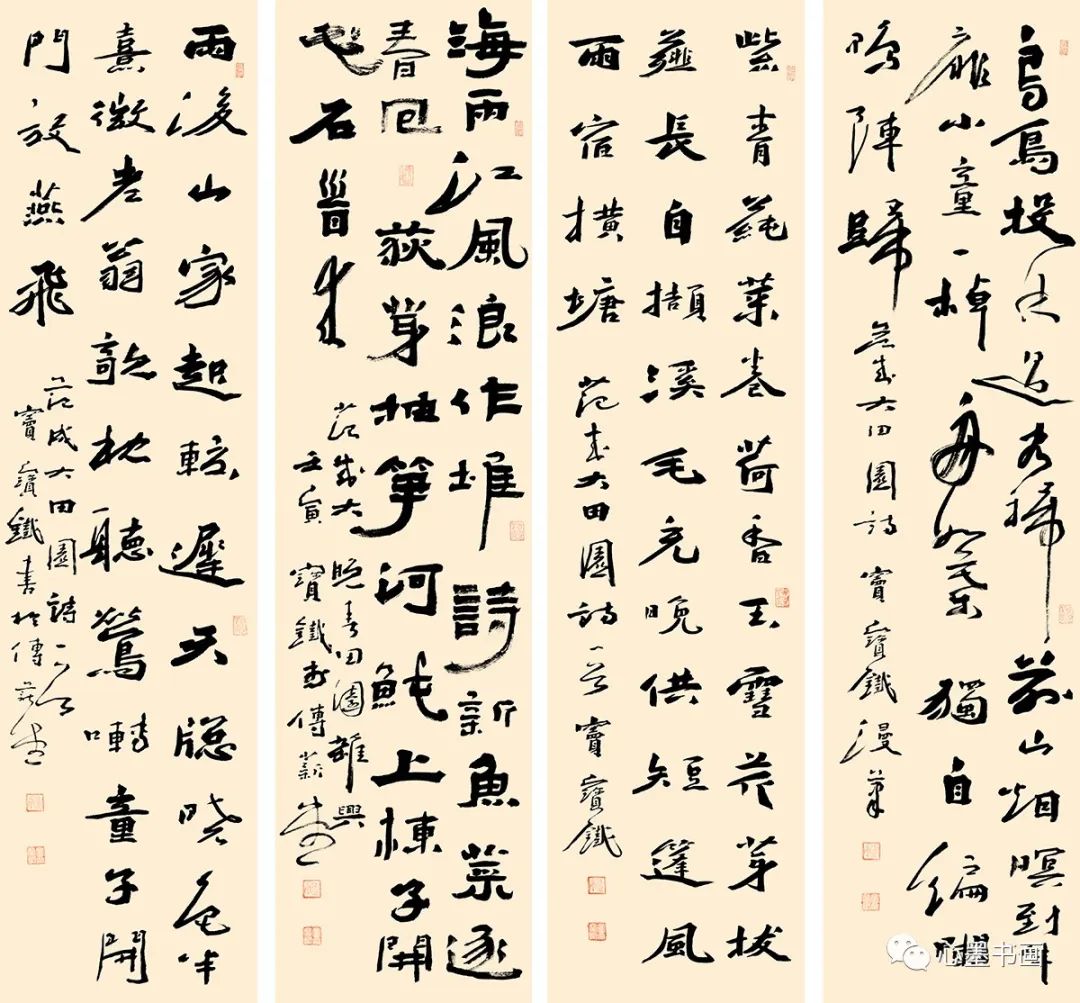 烏鳥投林過客稀前山烟暝到柴
扉小童一棹舟如葉獨自編闌
鴨陣歸 范成大田園詩 竇寶鐵漫筆
紫青蒓菜卷荷香玉雪芹芽拔
薤長自擷溪毛充晚供短篷風
雨宿橫塘 范成大田園詩一首 竇寶鐵
海雨江風浪作堆詩新魚菜逐
春回荻芽抽筍河魨上楝子開
花石首來 范成大晚春田園雜興
壬寅 寶鐵書傳薪堂
雨後山家起較遲天窓曉色半
熹微老翁欹枕聽鶯囀童子開
門放燕飛 范成大田園詩一首
竇寶鐵書於傳薪堂
心墨书画